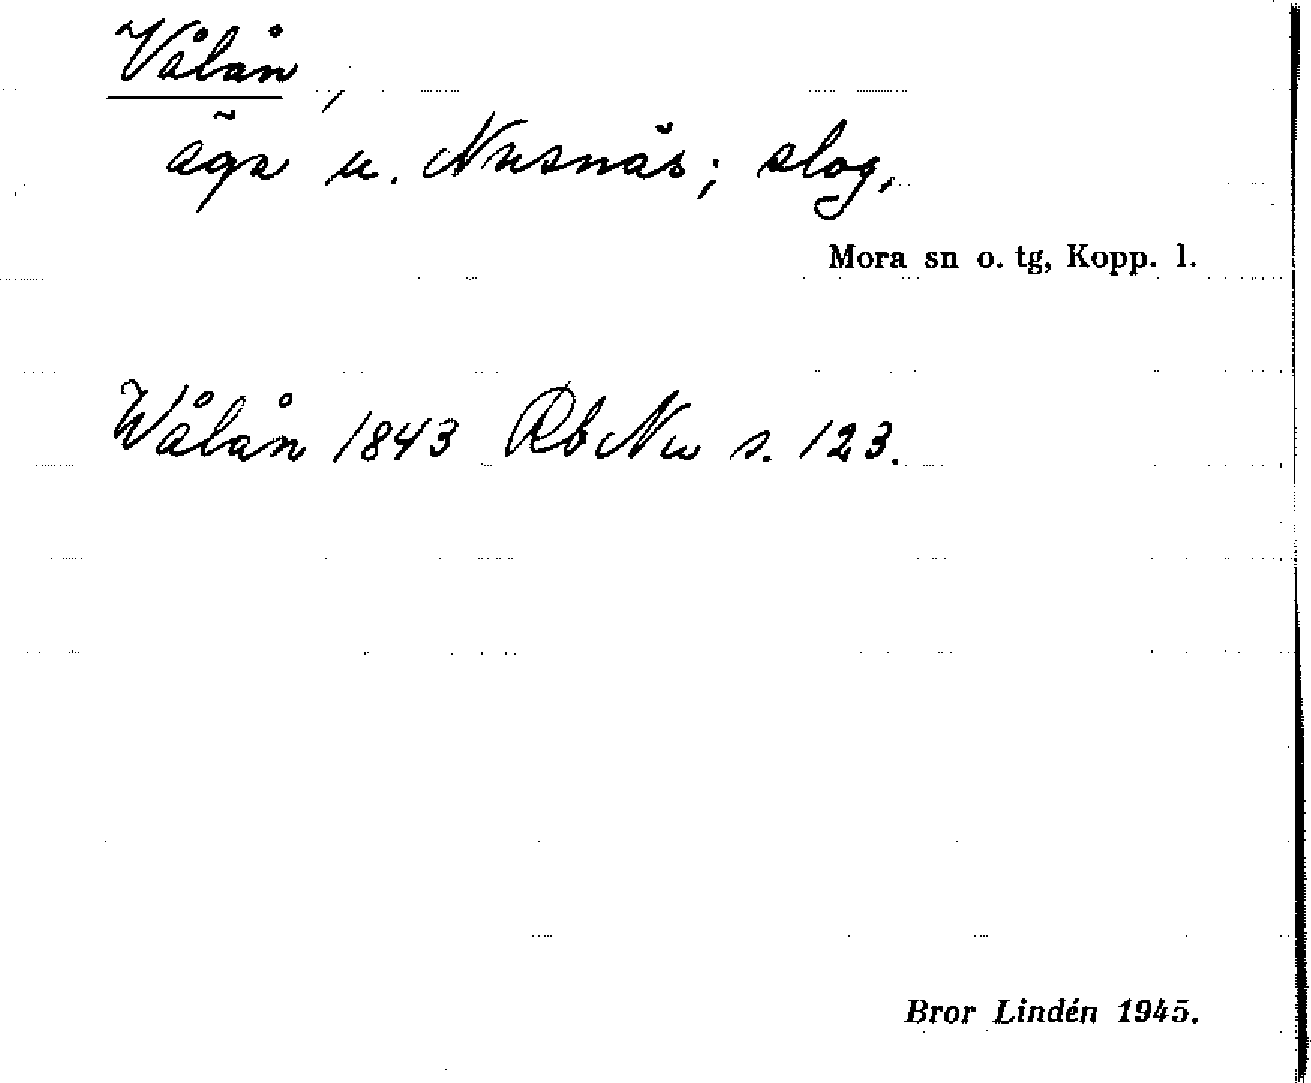 Vålån,
äga u. Nusnäs; slog,
Mora sn o. tg, Kopp. l.
Wålån 1843 Rb Nu s. 123.
Bror Lindén 1945.